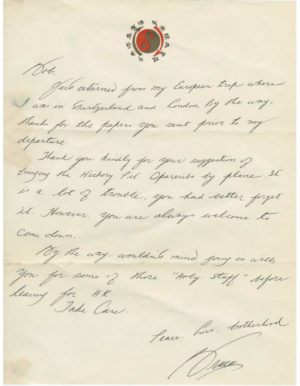 Bob,
Just returned from my European trip where
I was in Switzerland and London. By the way,
thank for the papers you sent prior to my
departure.
Thank you kindly for your suggestion of
bringing the Hickory Pit Spareribs by plane. It
is a lot of trouble, you had better forget
it. However, you are always welcome to
come down.
By the way, wouldn't mind going in with
you for some of those "Holy stuff" before
leaving for H.K.
Take Care
Peace, Love, Brotherhood
Bruce